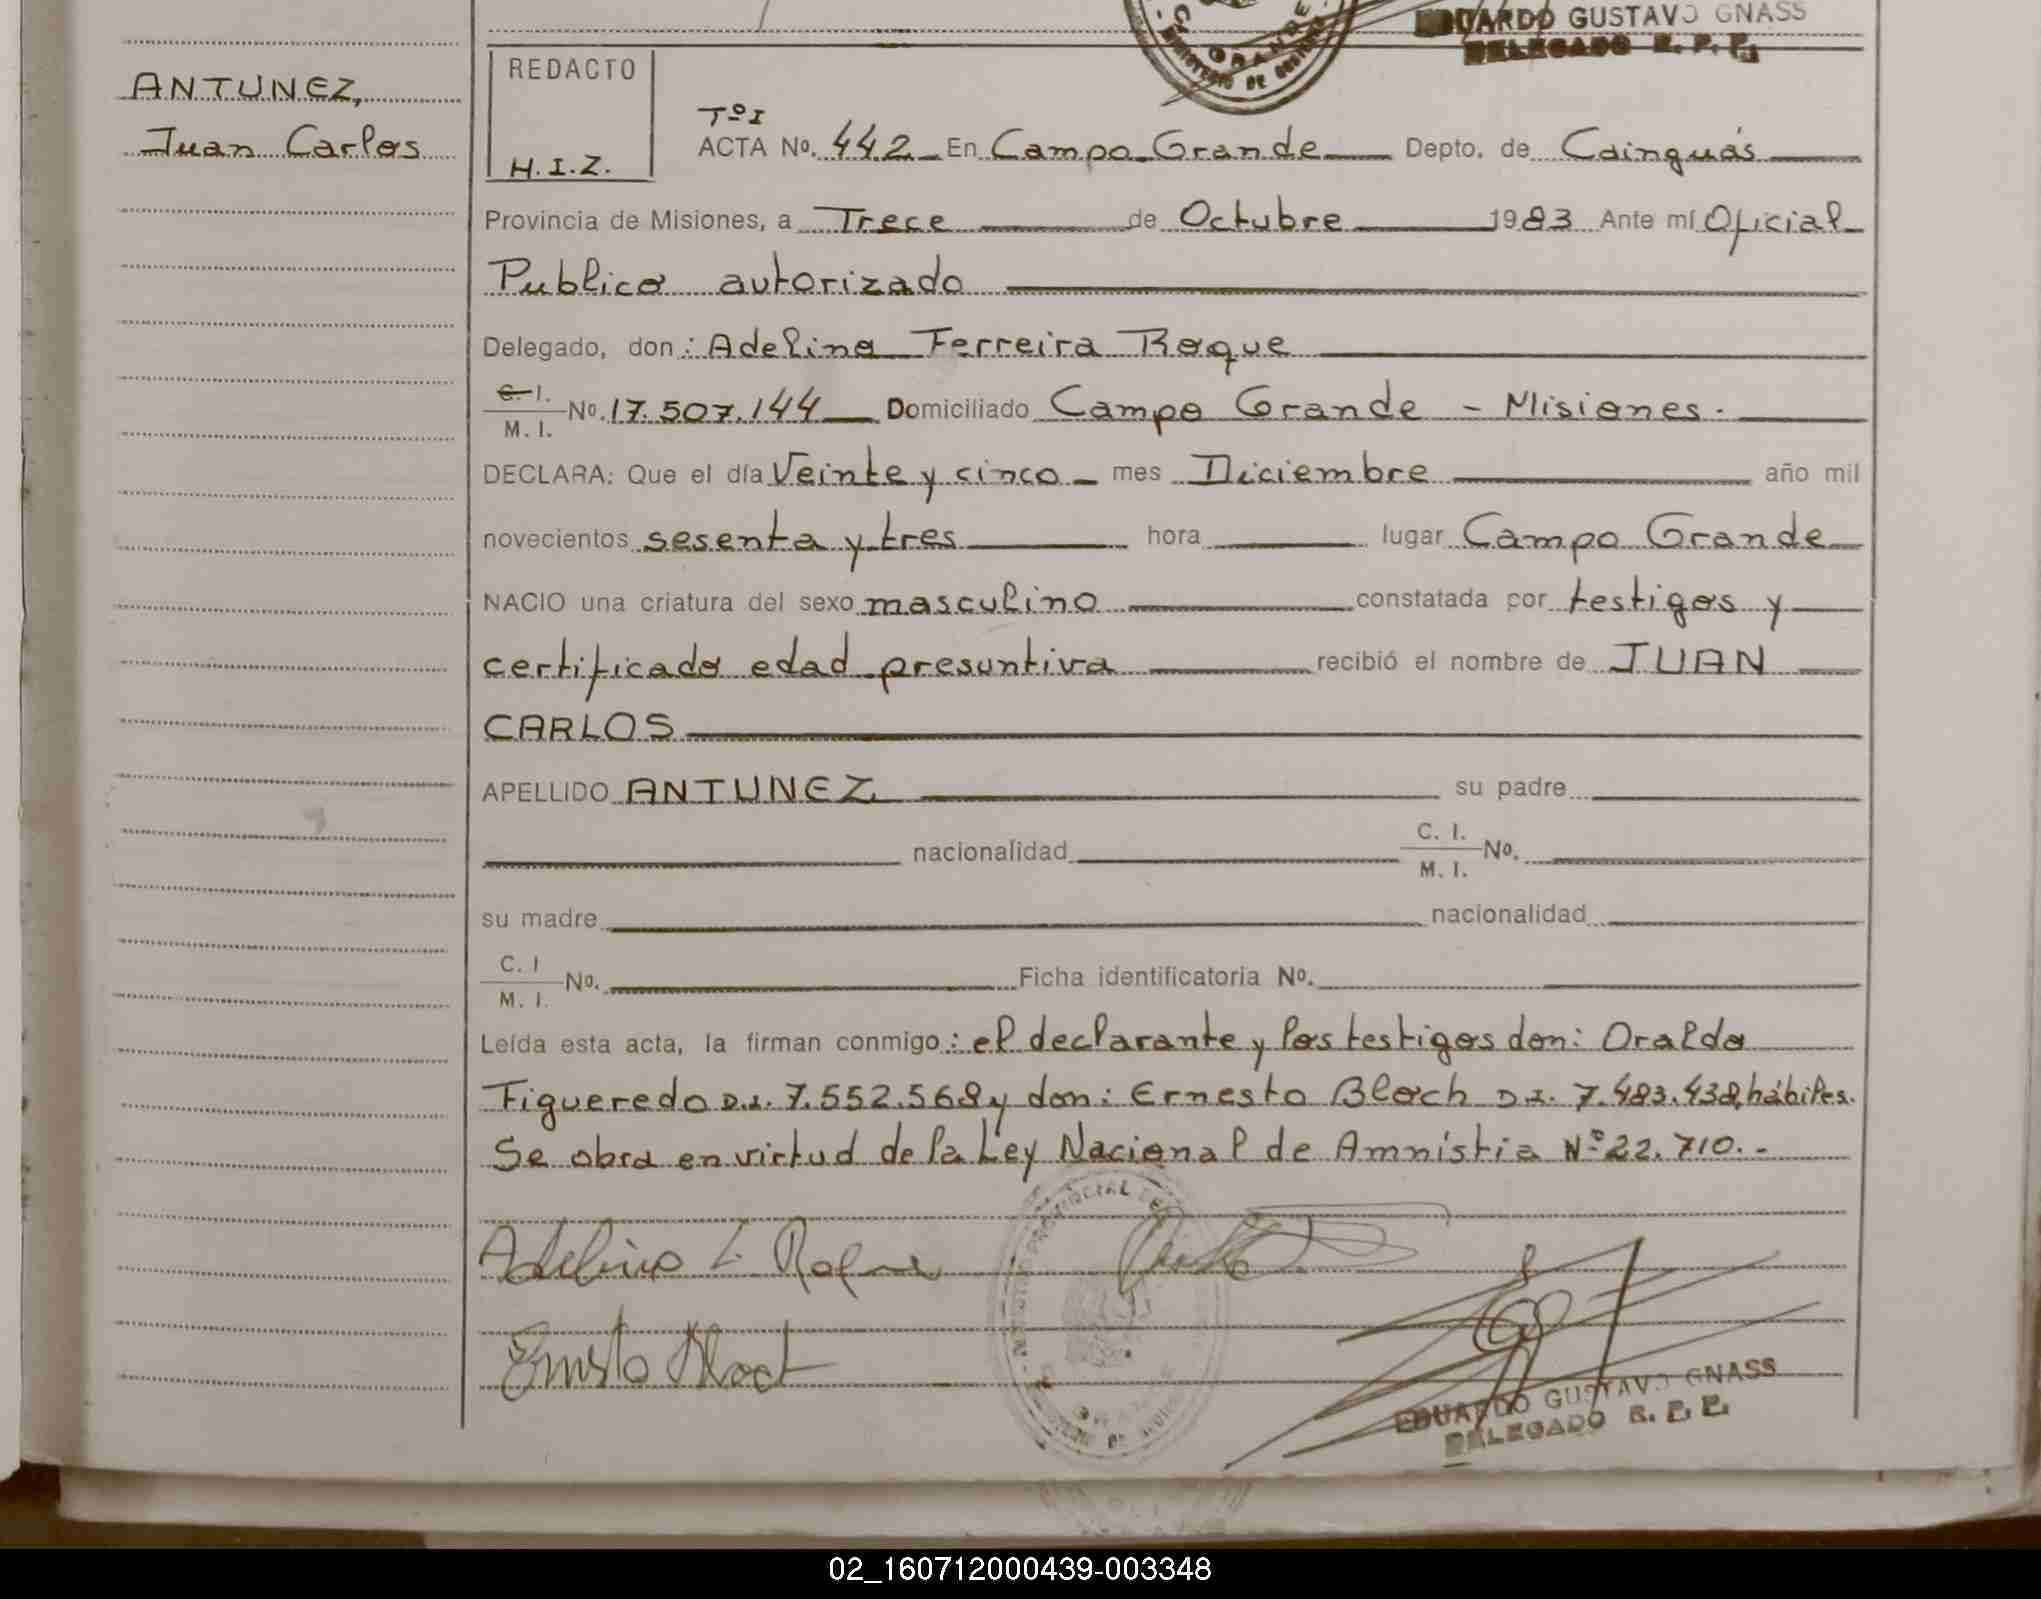 EDUARDO GUSTAVO GNASS
DELEGADO R. P. P.
CAMPO GRANDE
MINISTERIO DE GOBIERNO
ANTUNEZ,
Juan Carlos
REDACTO
H.I.Z.
Tº I
ACTA Nº. 442 En Campo Grande Depto. de Cainguás
Provincia de Misiones, a Trece de Octubre 1983 Ante mí Oficial
Publico autorizado
Delegado, don: Adelino Ferreira Roque
C. I. M. I. Nº. 17.507.144 Domiciliado Campo Grande - Misiones.
DECLARA: Que el día Veinte y cinco mes Diciembre año mil
novecientos sesenta y tres hora lugar Campo Grande
NACIO una criatura del sexo masculino constatada por testigos y
certificado edad presuntiva recibió el nombre de JUAN
CARLOS
APELLIDO ANTUNEZ su padre
nacionalidad C. I. M. I. Nº.
su madre nacionalidad
C. I M. I. Nº. Ficha identificatoria Nº.
Leída esta acta, la firman conmigo: el declarante y los testigos don: Oraldo
Figueredo D.I. 7.552.568 y don: Ernesto Bloch D.I. 7.483.438, hábiles.
Se obra en virtud de la Ley Nacional de Amnistia Nº 22.710.-
Ernesto Bloch
EDUARDO GUSTAVO GNASS
DELEGADO R. P. P.
02_160712000439-003348